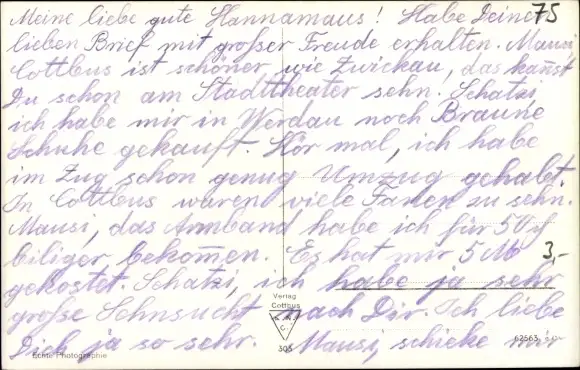 Meine liebe gute Hannamaus! Habe Deinen 75
lieben Brief mit großer Freude erhalten. Mausi,
Cottbus ist schöner wie Zwickau, das kannst
Du schon am Stadttheater sehn. Schatzi,
ich habe mir in Werdau noch Braune
Schuhe gekauft. Hör mal, ich habe
im Zug schon genug Umzug gehabt.
In Cottbus waren viele Fanen zu sehn.
Mausi, das Armband habe ich für 50 Pf
biliger bekommen. Es hat mir 5 M 3,-
gekostet. Schatzi, ich habe ja sehr
große Sehnsucht nach Dir. Ich liebe
Dich ja so sehr. Mausi, schicke mir
Verlag
Cottbus
C.
303
Echte Photographie
62563